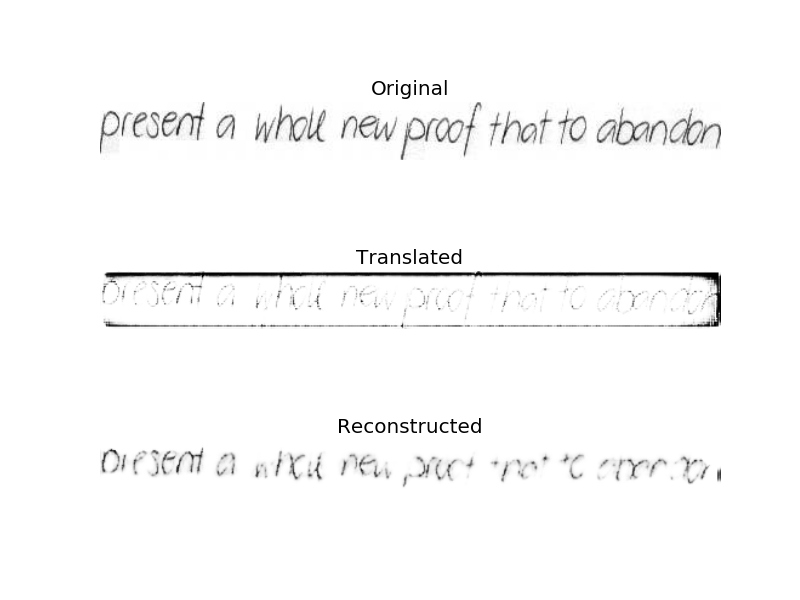 Original
present a whole new proof that to abandon
Translated
present a whole new proof that to abandon
Reconstructed
present a new